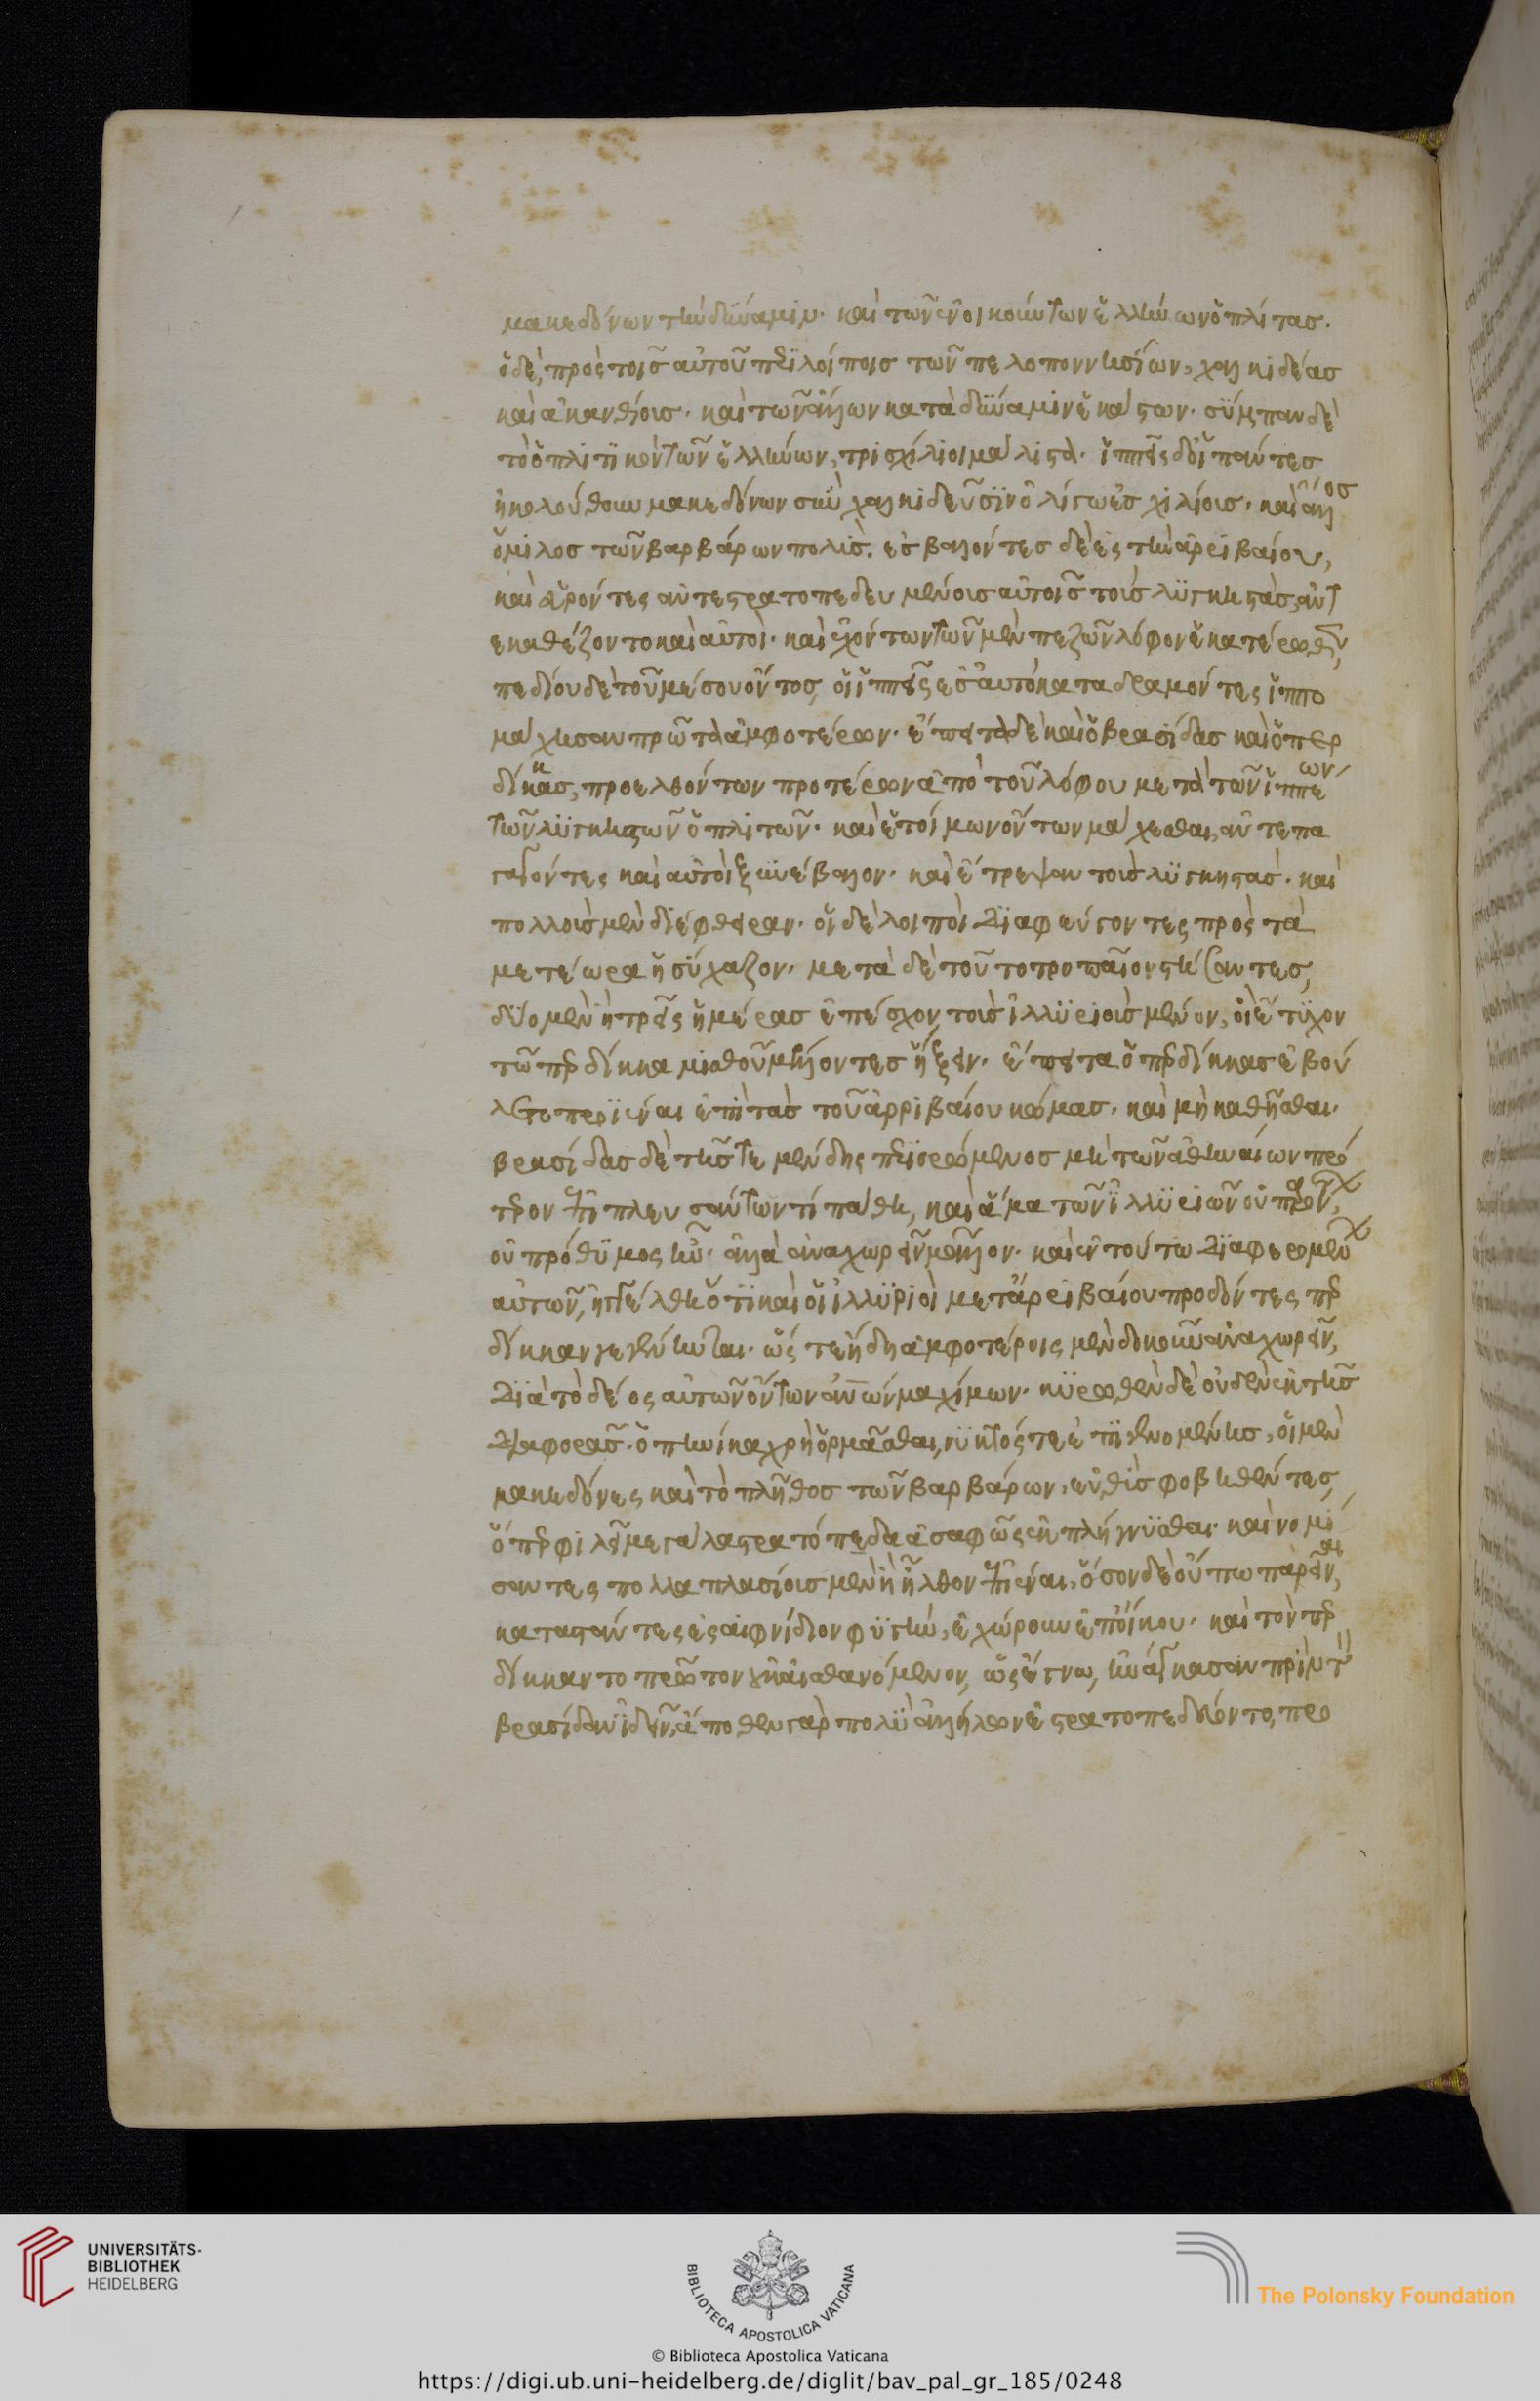 μακεδόνων τὴν δύναμιν· καὶ τῶν ἐνοικούντων ἑλλήνων ὁπλίτας·
ὁ δὲ, πρὸς τοῖς αὐτοῦ περιλοίποις τῶν πελοποννησίων, χαλκιδέας
καὶ ἀκανθίους· καὶ τῶν ἄλλων κατὰ δύναμιν ἑκάστων· σύμπαν δὲ
τὸ ὁπλιτικὸν τῶν ἑλλήνων, τρισχίλιοι μάλιστα· ἱππεῖς δ' οἱ πάντες
ἠκολούθουν μακεδόνων σὺν χαλκιδεῦσιν ὀλίγω ἐς χιλίους· καὶ ἄλλος
ὅμιλος τῶν βαρβάρων πολύς· ἐσβαλόντες δὲ ἐς τὴν ἀρριβαίου,
καὶ εὑρόντες ἀντεστρατοπεδευμένους αὐτοῖς τοὺς λυγκηστὰς, ἀντ
εκαθέζοντο καὶ αὐτοί· καὶ ἐχόντων τῶν μὲν πεζῶν λόφον ἑκατέρωθεν,
πεδίου δὲ τοῦ μέσου ὄντος, οἱ ἱππεῖς ἐς αὐτὸ καταδραμόντες ἱππο
μάχησαν πρῶτα ἀμφοτέρων· ἔπειτα δὲ καὶ ὁ βρασίδας καὶ ὁ περ
δίκκας, προελθόντων προτέρων ἀπὸ τοῦ λόφου μετὰ τῶν ἱππέων
τῶν λυγκηστῶν ὁπλιτῶν· καὶ ἑτοίμων ὄντων μάχεσθαι, ἀντεπα
γαγόντες καὶ αὐτοὶ ξυνέβαλον· καὶ ἔτρεψαν τοὺς λυγκηστάς· καὶ
πολλοὺς μὲν διέφθειραν· οἱ δὲ λοιποὶ διαφεύγοντες πρὸς τὰ
μετέωρα ἡσύχαζον· μετὰ δὲ τοῦτο τροπαῖον στήσαντες,
δύο μὲν ἢ τρεῖς ἡμέρας ἐπέσχον, τοὺς ἰλλυριοὺς μένον, οἱ ἔτυχον
τῶ περδίκκα μισθοῦ μέλλοντες ἥξειν· ἔπειτα ὁ περδίκκας ἐβού
λετο προϊέναι ἐπὶ τὰς τοῦ ἀρριβαίου κώμας· καὶ μὴ καθῆσθαι·
βρασίδας δὲ τῆς τε μένδης περιορώμενος μὴ τῶν ἀθηναίων πρό
τερον ἐπιπλευσάντων τί πάθη, καὶ ἅμα τῶν ἰλλυριῶν οὐ παρόντων,
οὐ πρόθυμος ἦν· ἀλλὰ ἀναχωρεῖν μᾶλλον· καὶ ἐν τούτω διαφερομένων
αὐτῶν, ἠγγέλθη ὅτι καὶ οἱ ἰλλυριοὶ μετ' ἀρριβαίου προδόντες περ
δίκκαν γεγένηνται· ὥστε ἤδη ἀμφοτέροις μὲν δοκοῦν ἀναχωρεῖν,
διὰ τὸ δέος αὐτῶν ὄντων ἀνων μαχίμων· κυρωθὲν δὲ οὐδὲν ἐκ τῆς
διαφορᾶς· ὁπηνίκα χρὴ ὁρμᾶσθαι, νυκτός τε ἐπιγενομένης, οἱ μὲν
μακεδόνες καὶ τὸ πλῆθος τῶν βαρβάρων, εὐθὺς φοβηθέντες,
ὅπερ φιλεῖ μεγάλα στρατόπεδα ἀσαφῶς ἐκπλήγνυσθαι· καὶ νομί
σαντες πολλαπλασίους μὲν ἢ ἦλθον ἐπιέναι, ὅσον δὲ οὔπω παρεῖναι,
καταστάντες ἐς αἰφνίδιον φυγὴν, ἐχώρουν ἐπ' οἴκου· καὶ τὸν περ
δίκκαν το πρῶτον οὐκ αἰσθανόμενον, ὡς ἔγνω, ἠνάγκασαν πρὶν τὸν
βρασίδαν ἰδεῖν, ἄποθεν γὰρ πολὺ ἀλλήλων ἐστρατοπεδεύοντο, προ
UNIVERSITÄTS-
BIBLIOTHEK
HEIDELBERG
BIBLIOTECA APOSTOLICA VATICANA
The Polonsky Foundation
© Biblioteca Apostolica Vaticana
https://digi.ub.uni-heidelberg.de/diglit/bav_pal_gr_185/0248